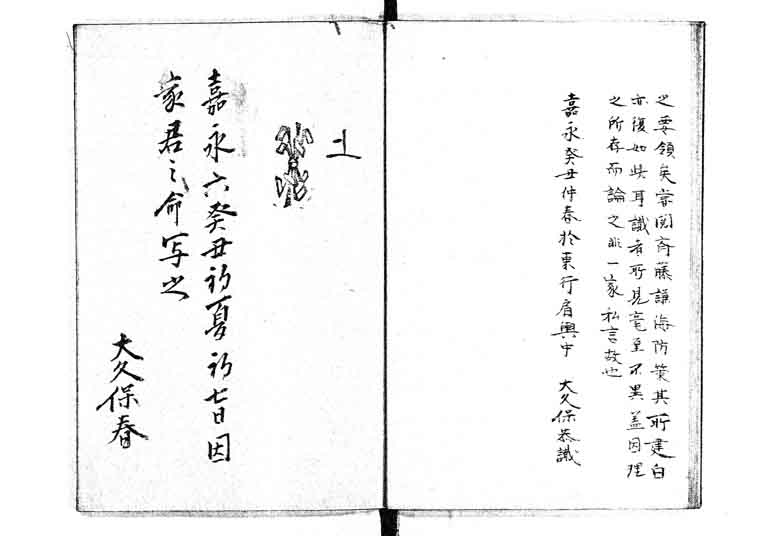 之要領矣嘗閱斎藤謙海防策其所建白
亦復如此耳識者所見毫釐不異蓋因理
之所存而論之非一家私言故也
嘉永癸丑仲春於東行肩輿中　大久保忝識
嘉永六癸丑初夏初七日因
家君之命写之
大久保春